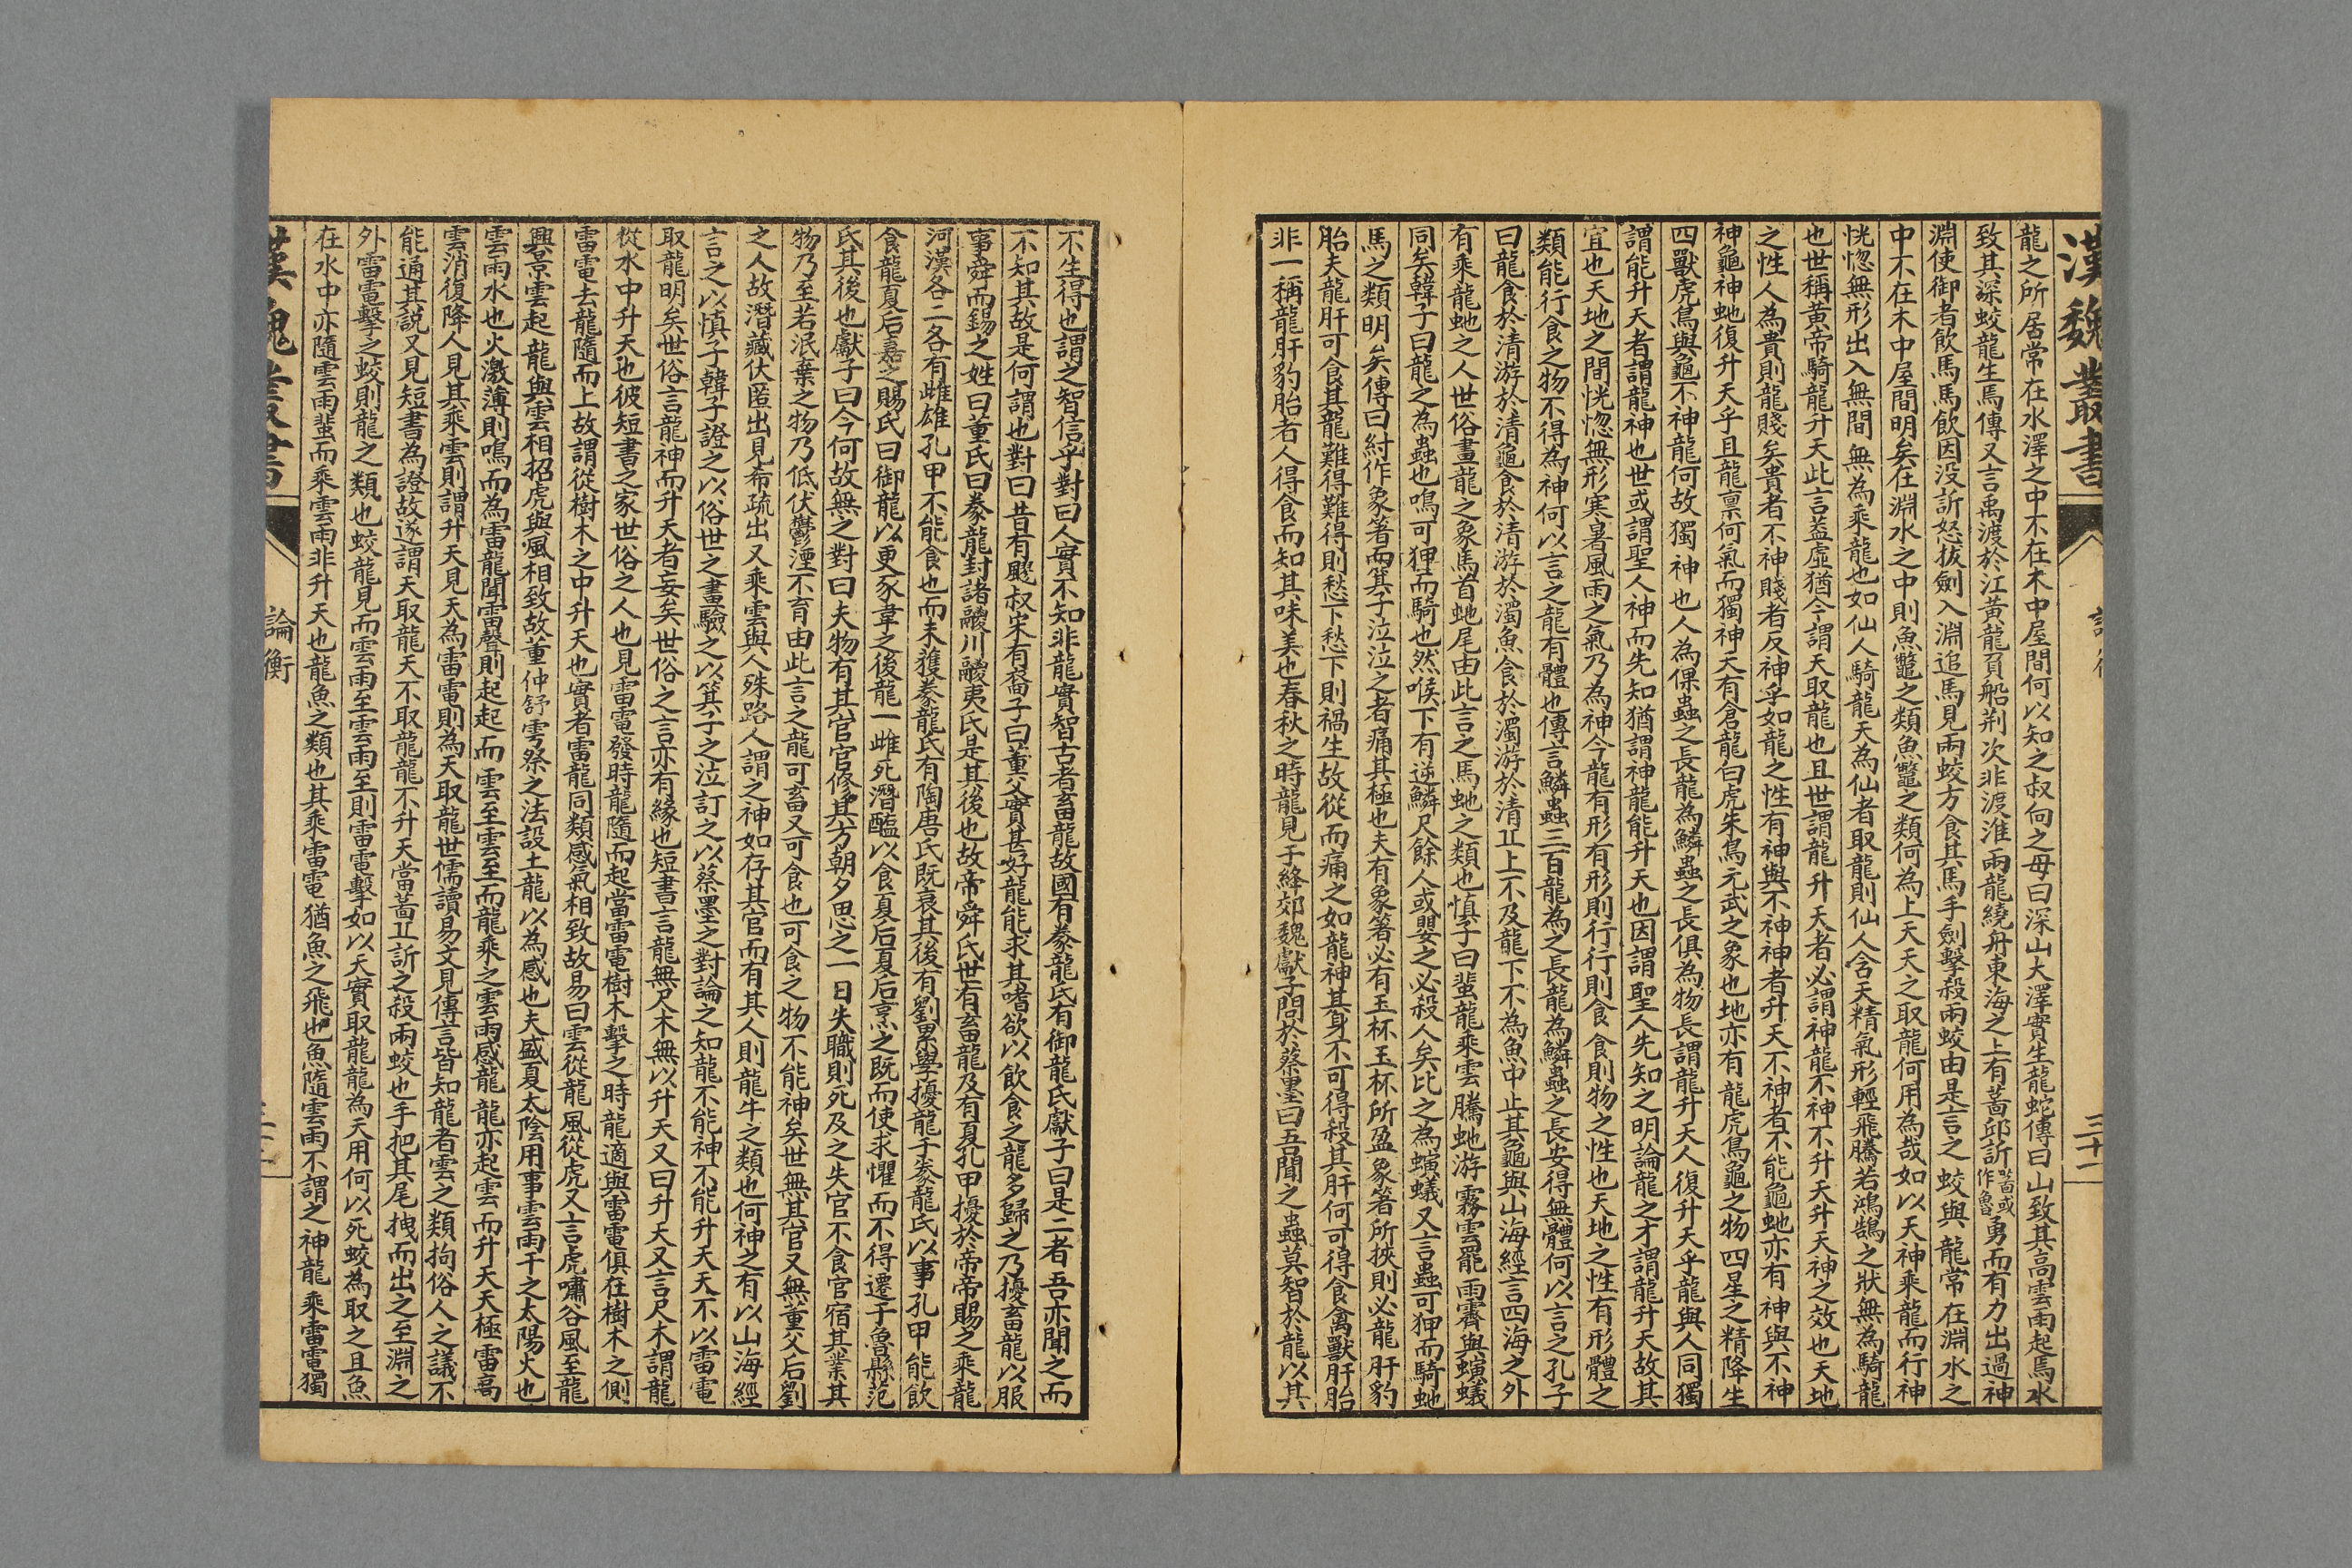 漢魏叢書
三十二
龍之所居常在水澤之中不在木中屋間何以知之叔向之母曰深山大澤實生龍蛇傳曰山致其高雲雨起焉水
致其深蛟龍生焉傳又言禹渡於江黃龍負船荆次非渡淮兩龍繞舟東海之上有菑邱訢菑或作魯勇而有力出過神
淵使御者飲馬馬飲因没訢怒拔劍入淵追馬見兩蛟方食其馬手劍擊殺兩蛟由是言之蛟與龍常在淵水之
中不在木中屋間明矣在淵水之中則魚鼈之類魚鼈之類何為上天天之取龍何用為哉如以天神乘龍而行神
恍惚無形出入無間無為乘龍也如仙人騎龍天為仙者取龍則仙人含天精氣形輕飛騰若鴻鵠之狀無為騎龍
也世稱黃帝騎龍升天此言葢虛猶今謂天取龍也且世謂龍升天者必謂神龍不神不升天升天神之效也天地
之性人為貴則龍賤矣貴者不神賤者反神乎如龍之性有神與不神神者升天不神者不能龜虵亦有神與不神
神龜神虵復升天乎且龍禀何氣而獨神天有倉龍白虎朱鳥元武之象也地亦有龍虎鳥龜之物四星之精降生
四獸虎鳥與龜不神龍何故獨神也人為倮蟲之長龍為鱗蟲之長俱為物長謂龍升天人復升天乎龍與人同獨
謂能升天者謂龍神也世或謂聖人神而先知猶謂神龍能升天也因謂聖人先知之明論龍之才謂龍升天故其
宜也天地之間恍惚無形寒暑風雨之氣乃為神今龍有形有形則行行則食食則物之性也天地之性有形體之
類能行食之物不得為神何以言之龍有體也傳言鱗蟲三百龍為之長龍為鱗蟲之長安得無體何以言之孔子
曰龍食於清游於清龜食於清游於濁魚食於濁游於清丘上不及龍下不為魚中止其龜與山海經言四海之外
有乘龍虵之人世俗畫龍之象馬首虵尾由此言之馬虵之類也慎子曰蜚龍乘雲騰虵游霧雲罷雨霽與螾蟻
同矣韓子曰龍之為蟲也鳴可狎而騎也然喉下有逆鱗尺餘人或嬰之必殺人矣比之為螾蟻又言蟲可狎而騎虵
馬之類明矣傳曰紂作象箸而箕子泣泣之者痛其極也夫有象箸必有玉杯玉杯所盈象箸所挾則必龍肝豹
胎夫龍肝可食其龍難得難得則愁下愁下則禍生故從而痛之如龍神其身不可得殺其肝何可得食禽獸肝胎
非一稱龍肝豹胎者人得食而知其味美也春秋之時龍見于絳郊魏獻子問於蔡墨曰吾聞之蟲莫智於龍以其
不生得也謂之智信乎對曰人實不知非龍實智古者畜龍故國有豢龍氏有御龍氏獻子曰是二者吾亦聞之而
不知其故是何謂也對曰昔有飂叔宋有裔子曰董父實甚好龍能求其嗜欲以飲食之龍多歸之乃擾畜龍以服
事舜而錫之姓曰董氏曰豢龍封諸鬷川鬷夷氏是其後也故帝舜氏世有畜龍及有夏孔甲擾於帝帝賜之乘龍
河漢各二各有雌雄孔甲不能食也而未獲豢龍氏有陶唐氏既衰其後有劉累學擾龍于豢龍氏以事孔甲能飲
食龍夏后嘉之賜氏曰御龍以更豕韋之後龍一雌死潛醢以食夏后夏后烹之既而使求懼而不得遷于魯縣范
氏其後也獻子曰今何故無之對曰夫物有其官官修其方朝夕思之一日失職則死及之失官不食官宿其業其
物乃至若泯棄之物乃低伏鬱湮不育由此言之龍可畜又可食也可食之物不能神矣世無其官又無董父后劉
之人故潛藏伏匿出見希疏出又乘雲與人殊路人謂之神如存其官而有其人則龍牛之類也何神之有以山海經
言之以慎子韓子證之以俗世之畫驗之以箕子之泣訂之以蔡墨之對論之知龍不能神不能升天天不以雷電
取龍明矣世俗言龍神而升天者妄矣世俗之言亦有緣也短書言龍無尺木無以升天又曰升天又言尺木謂龍
從水中升天也彼短書之家世俗之人也見雷電發時龍隨而起當雷電樹木擊之時龍適與雷電俱在樹木之側
雷電去龍隨而上故謂從樹木之中升天也實者雷龍同類感氣相致故易曰雲從龍風從虎又言虎嘯谷風至龍
興景雲起龍與雲相招虎與風相致故董仲舒雩祭之法設土龍以為感也夫盛夏太陰用事雲雨干之太陽火也
雲雨水也火激薄則鳴而為雷龍聞雷聲則起起而雲至雲至而龍乘之雲雨感龍龍亦起雲而升天天極雷高
雲消復降人見其乘雲則謂升天見天為雷電則為天取龍世儒讀易文見傳言皆知龍者雲之類拘俗人之議不
能通其說又見短書為證故遂謂天取龍天不取龍龍不升天當菑丘訢之殺兩蛟也手把其尾拽而出之至淵之
外雷電擊之蛟則龍之類也蛟龍見而雲雨至雲雨至則雷電擊如以天實取龍龍為天用何以死蛟為取之且魚
在水中亦隨雲雨蜚而乘雲雨非升天也龍魚之類也其乘雷電猶魚之飛也魚隨雲雨不謂之神龍乘雷電獨
漢魏叢書
論衡